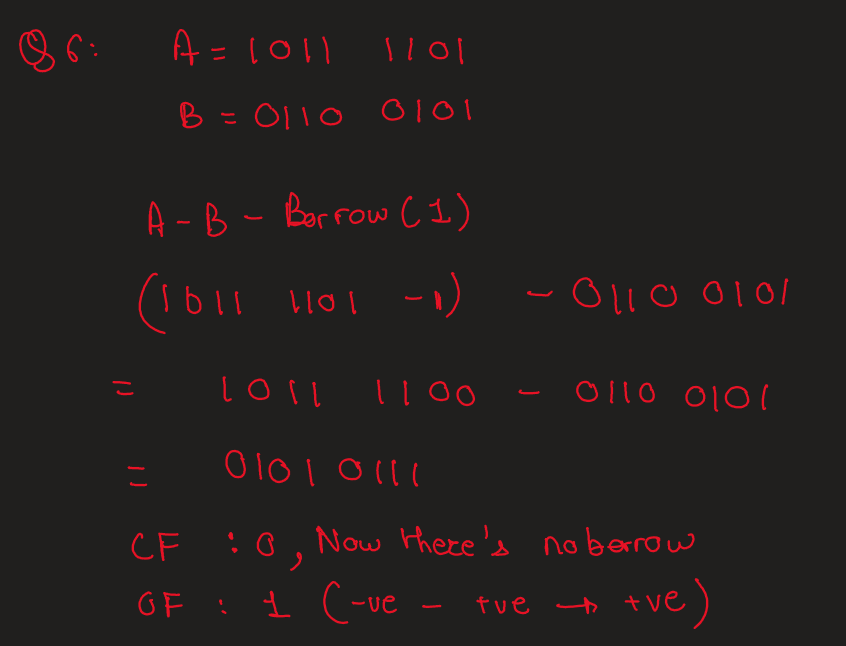 Q6: A = 1011 1101
B = 0110 0101
A - B - Borrow (1)
(1011 1101 - 1) - 0110 0101
= 1011 1100 - 0110 0101
= 0101 0111
CF : 0, Now there's no borrow
OF : 1 (-ve - +ve → +ve)